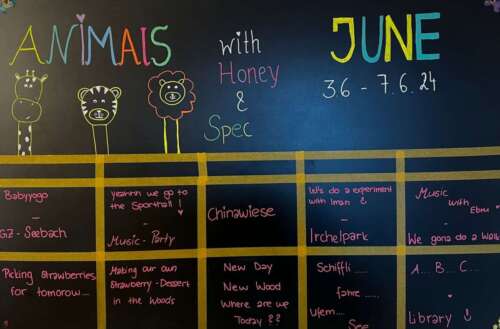 ANIMAlS
with
Honey
&
Spec
JUNE
3.6 - 7.6.24
Babyyogo
-
GZ - Seebach
yeahhh we go to
the Sporthall !
-
Music - Party
Chinawiese
We's do a experiment
with Iman &
-
Irchelpark
Music
with Ebru
-
We gona do a Walk
Picking strawberries
for tomorow...
Making our own
Strawberry - Dessert
in the Woods
New Day
New Wood
Where are we
Today ??
Schiffli ....
fahre ....
Ufem...
See
A... B... C...
Library !